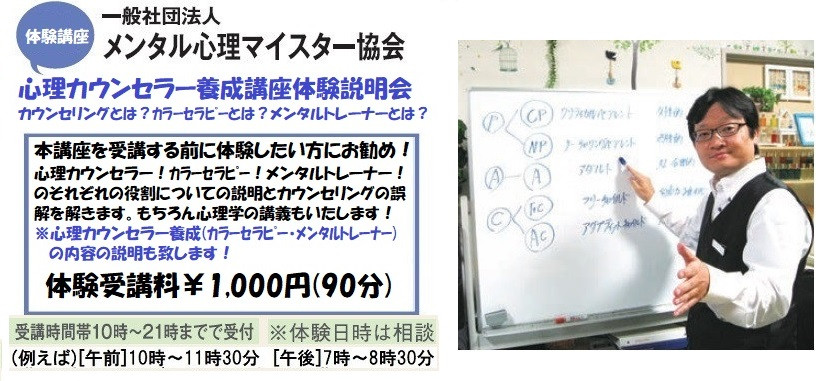 体験講座
一般社団法人
メンタル心理マイスター協会
心理カウンセラー養成講座体験説明会
カウンセリングとは？カラーセラピーとは？メンタルトレーナーとは？
本講座を受講する前に体験したい方にお勧め！
心理カウンセラー！カラーセラピー！メンタルトレーナー！
のそれぞれの役割についての説明とカウンセリングの誤
解を解きます。もちろん心理学の講義もいたします！
※心理カウンセラー養成(カラーセラピー・メンタルトレーナー)
の内容の説明も致します！
体験受講料￥1,000円(90分)
受講時間帯10時～21時までで受付
※体験日時は相談
(例えば)[午前]10時～11時30分
[午後]7時～8時30分
P
CP
クリティカルペアレント
NP
ナーチャリングペアレント
A
A
アダルト
C
FC
フリーチャイルド
AC
アダプティッドチャイルド